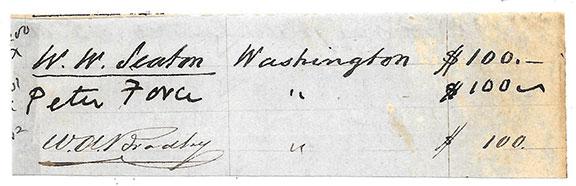 W. W. Seaton Washington $100.–
Peter Force " $100
W. A. Bradley " $ 100.